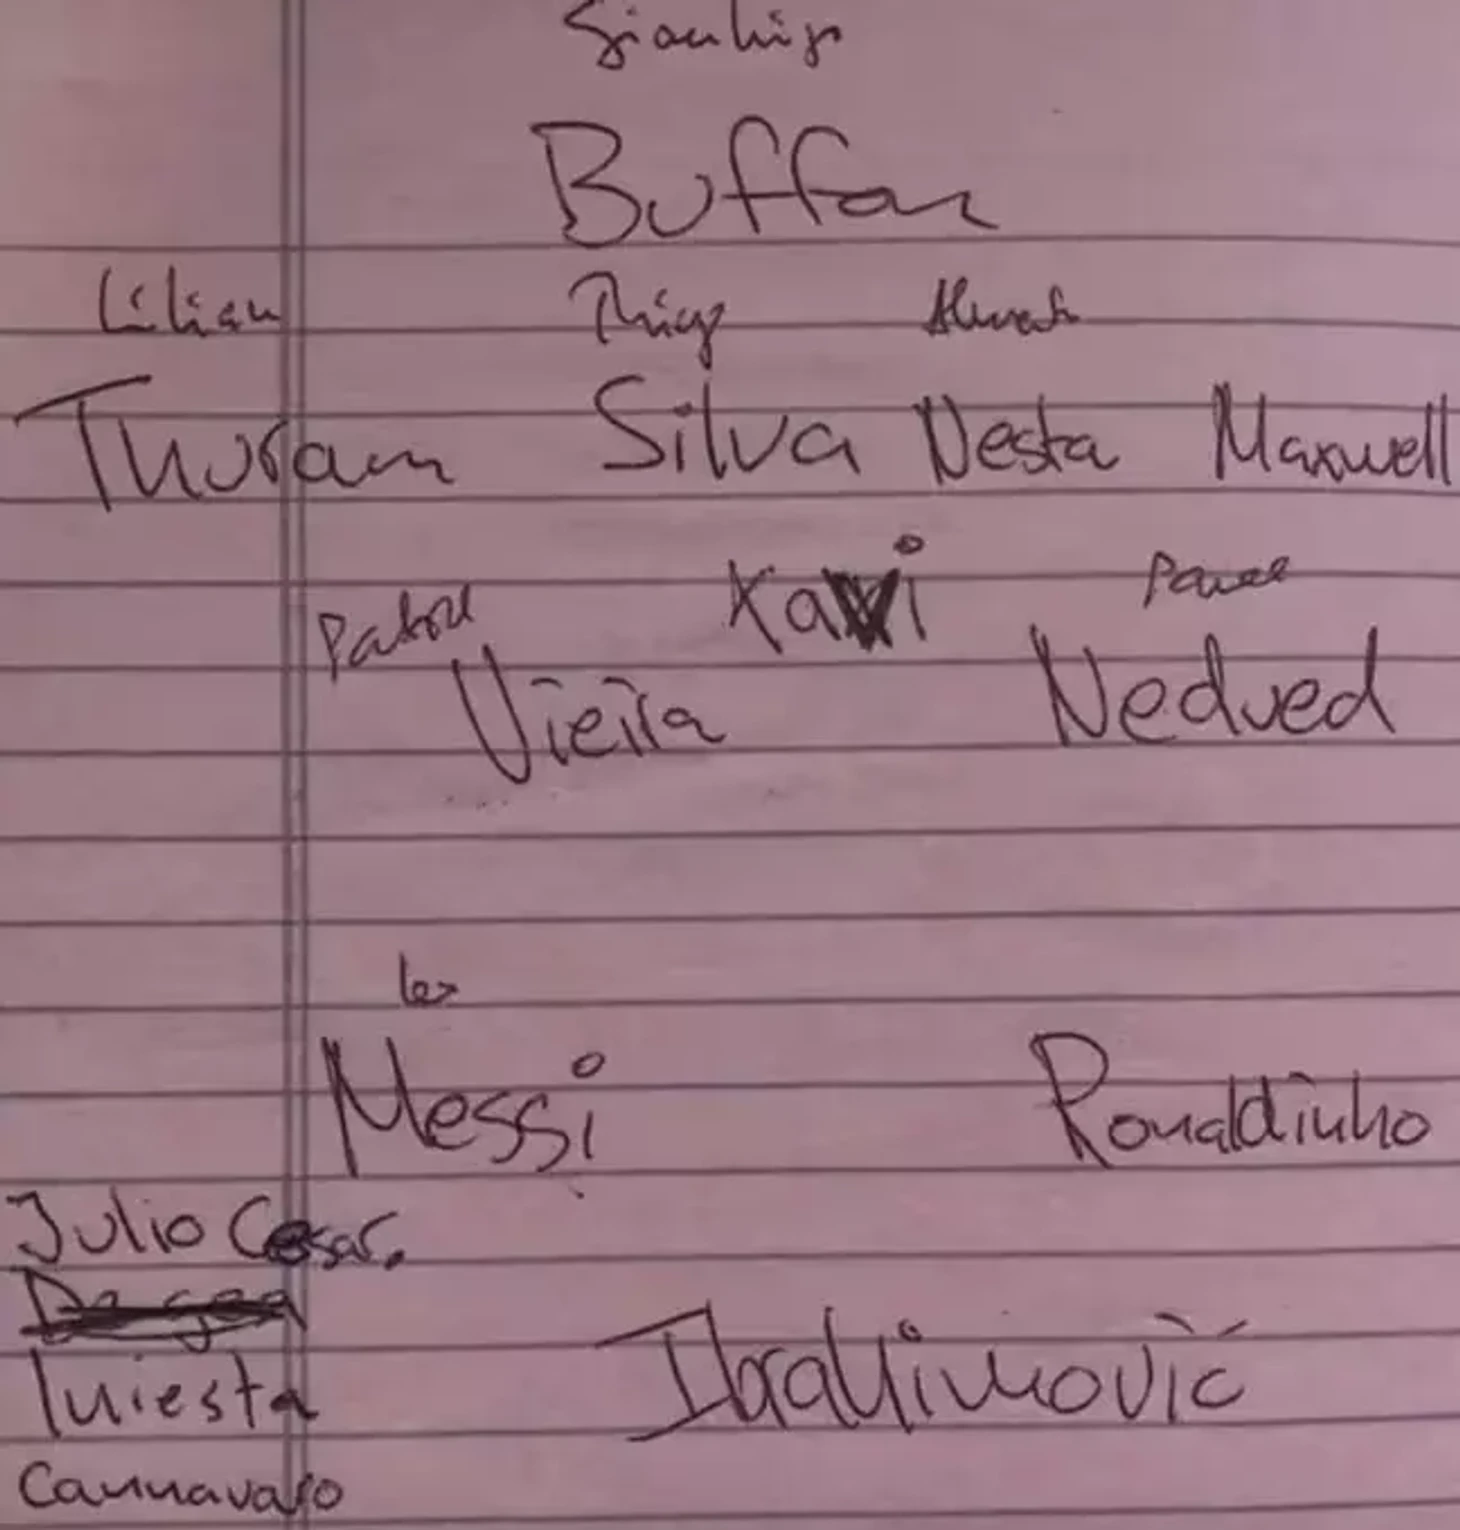 Gianluigi
Buffon
Lilian Thiago
Thuram Silva Nesta Maxwell
Patrick Xavi Pavel
Vieira Nedved
Leo
Messi Ronaldinho
Julio Cesar.
Iniesta Ibrahimović
Cannavaro